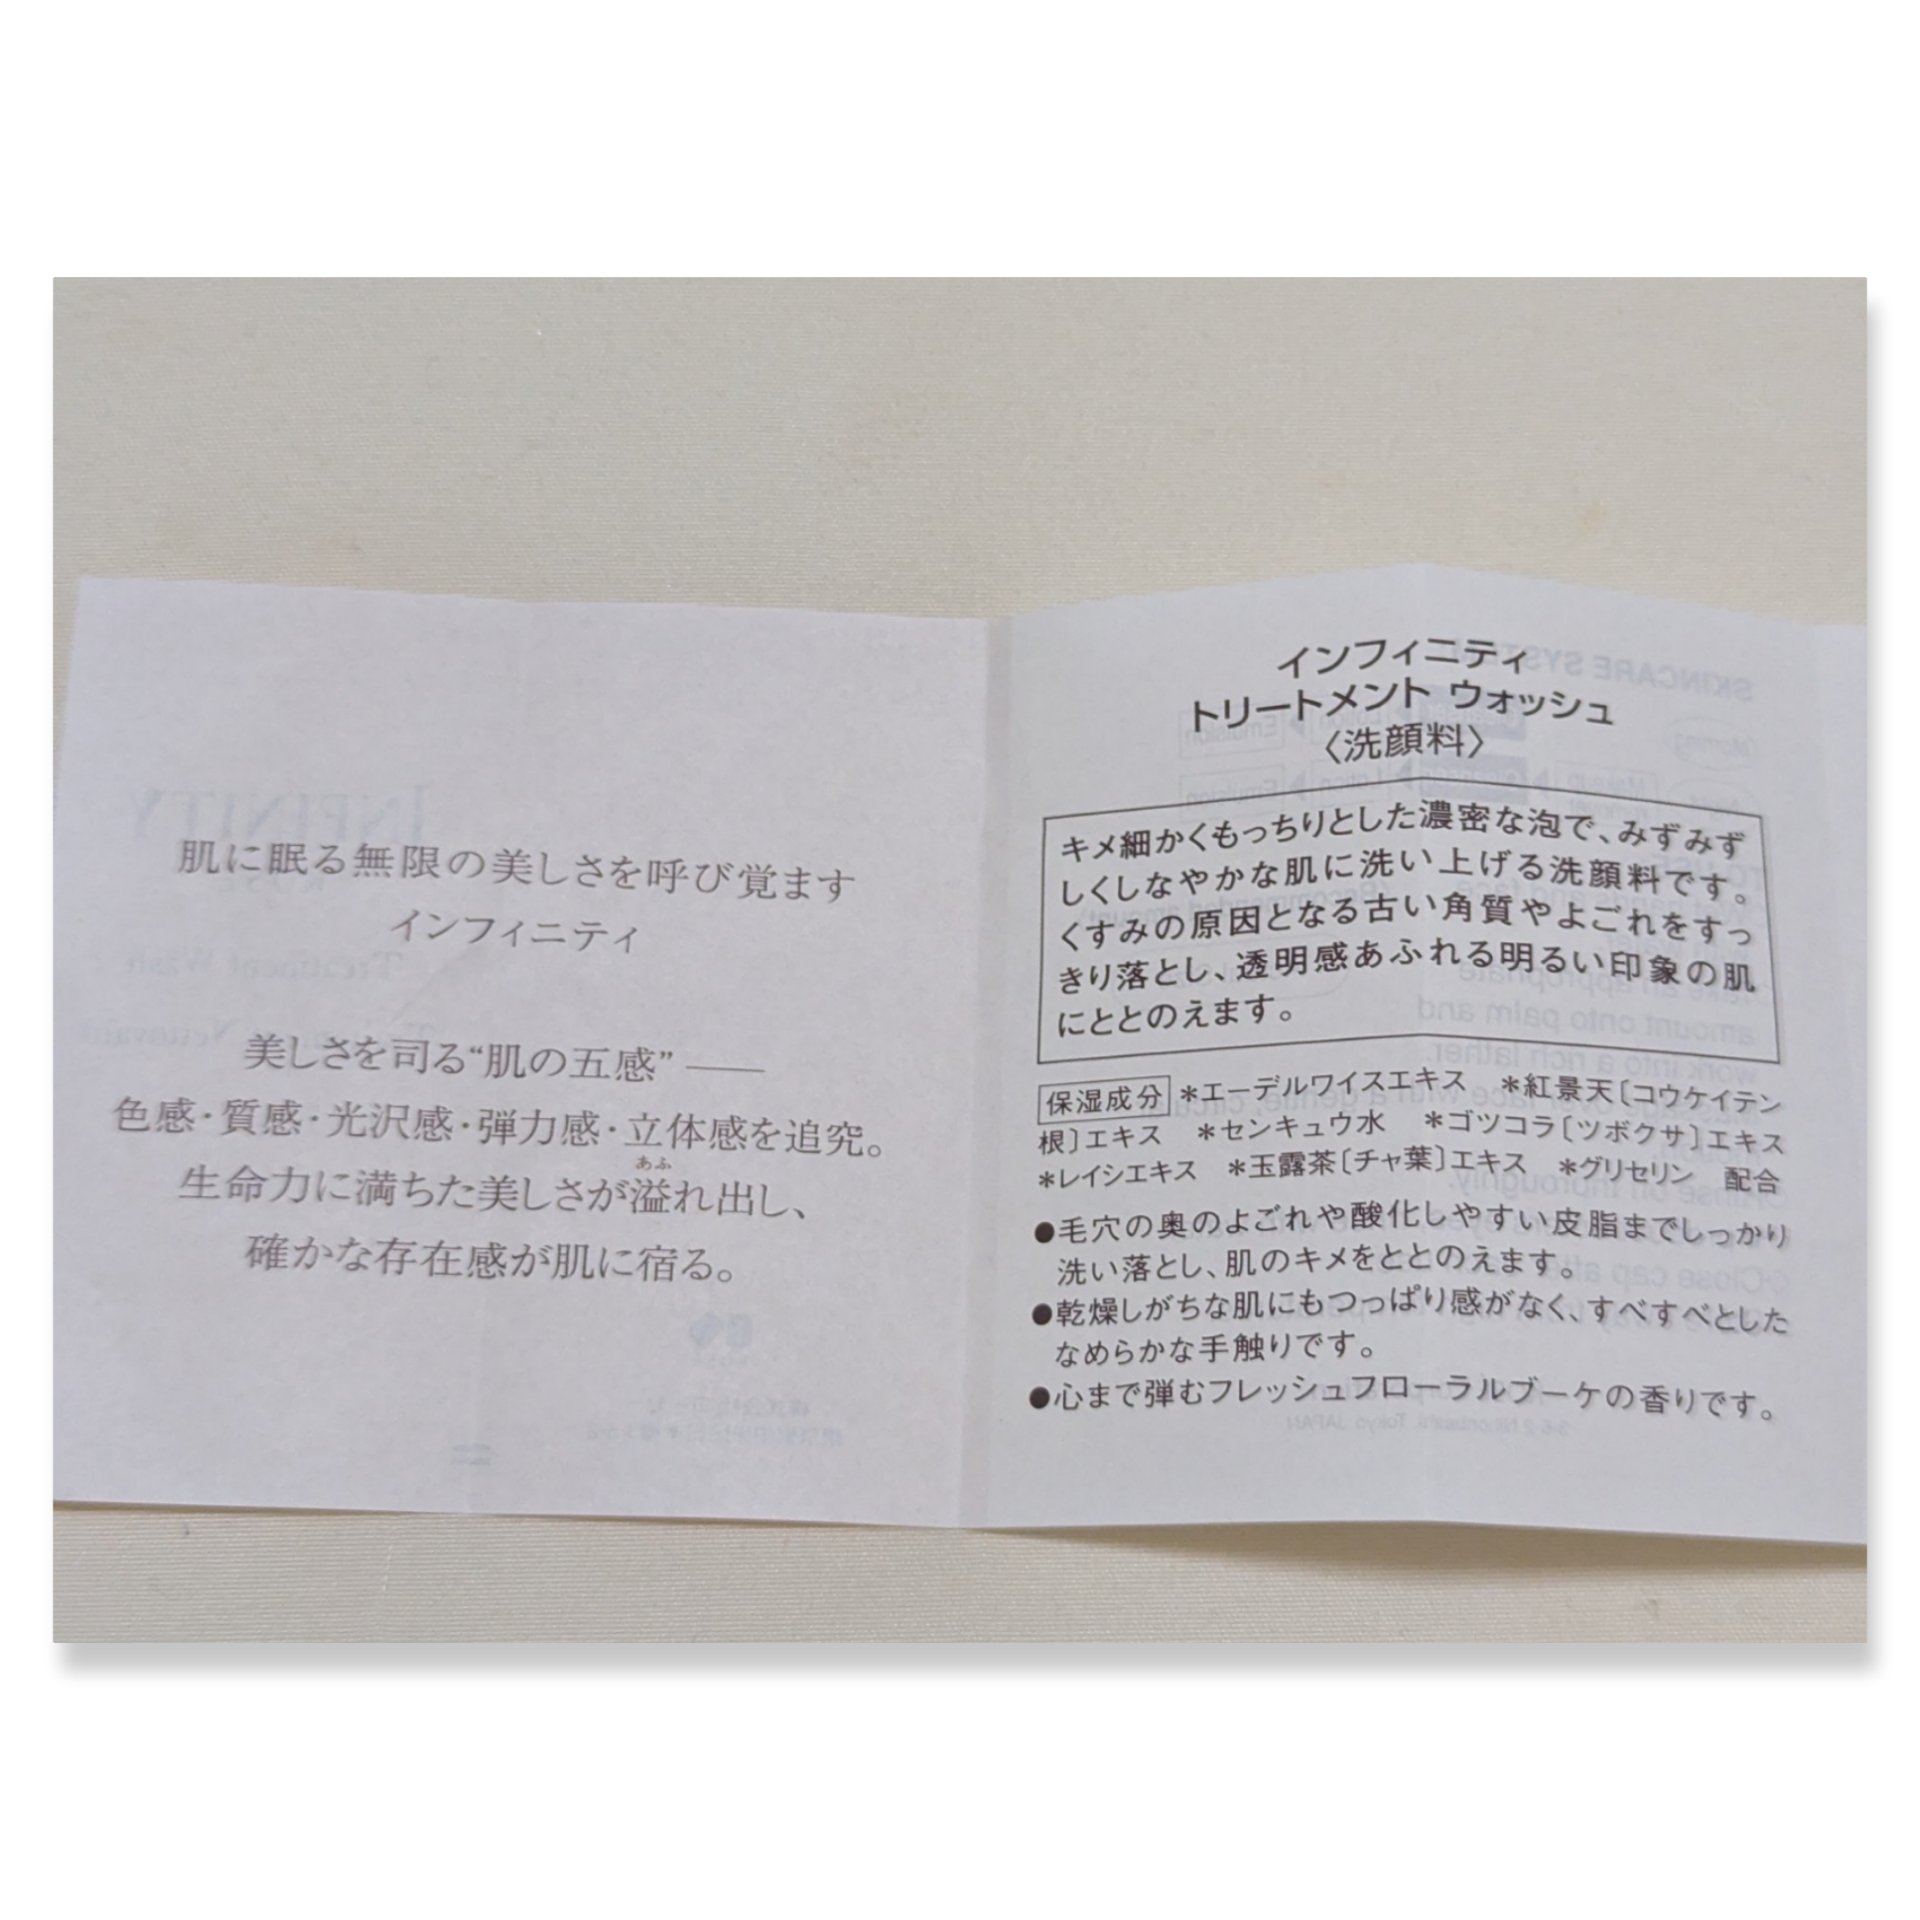 肌に眠る無限の美しさを呼び覚ます
インフィニティ
美しさを司る“肌の五感”——
色感・質感・光沢感・弾力感・立体感を追究。
生命力に満ちた美しさが溢れ出し、
あふ
確かな存在感が肌に宿る。
インフィニティ
トリートメント ウォッシュ
〈洗顔料〉
キメ細かくもっちりとした濃密な泡で、みずみず
しくしなやかな肌に洗い上げる洗顔料です。
くすみの原因となる古い角質やよごれをすっ
きり落とし、透明感あふれる明るい印象の肌
にととのえます。
保湿成分 *エーデルワイスエキス *紅景天〔コウケイテン
根〕エキス *センキュウ水 *ゴツコラ〔ツボクサ〕エキス
*レイシエキス *玉露茶〔チャ葉〕エキス *グリセリン 配合
●毛穴の奥のよごれや酸化しやすい皮脂までしっかり
洗い落とし、肌のキメをととのえます。
●乾燥しがちな肌にもつっぱり感がなく、すべすべとした
なめらかな手触りです。
●心まで弾むフレッシュフローラルブーケの香りです。